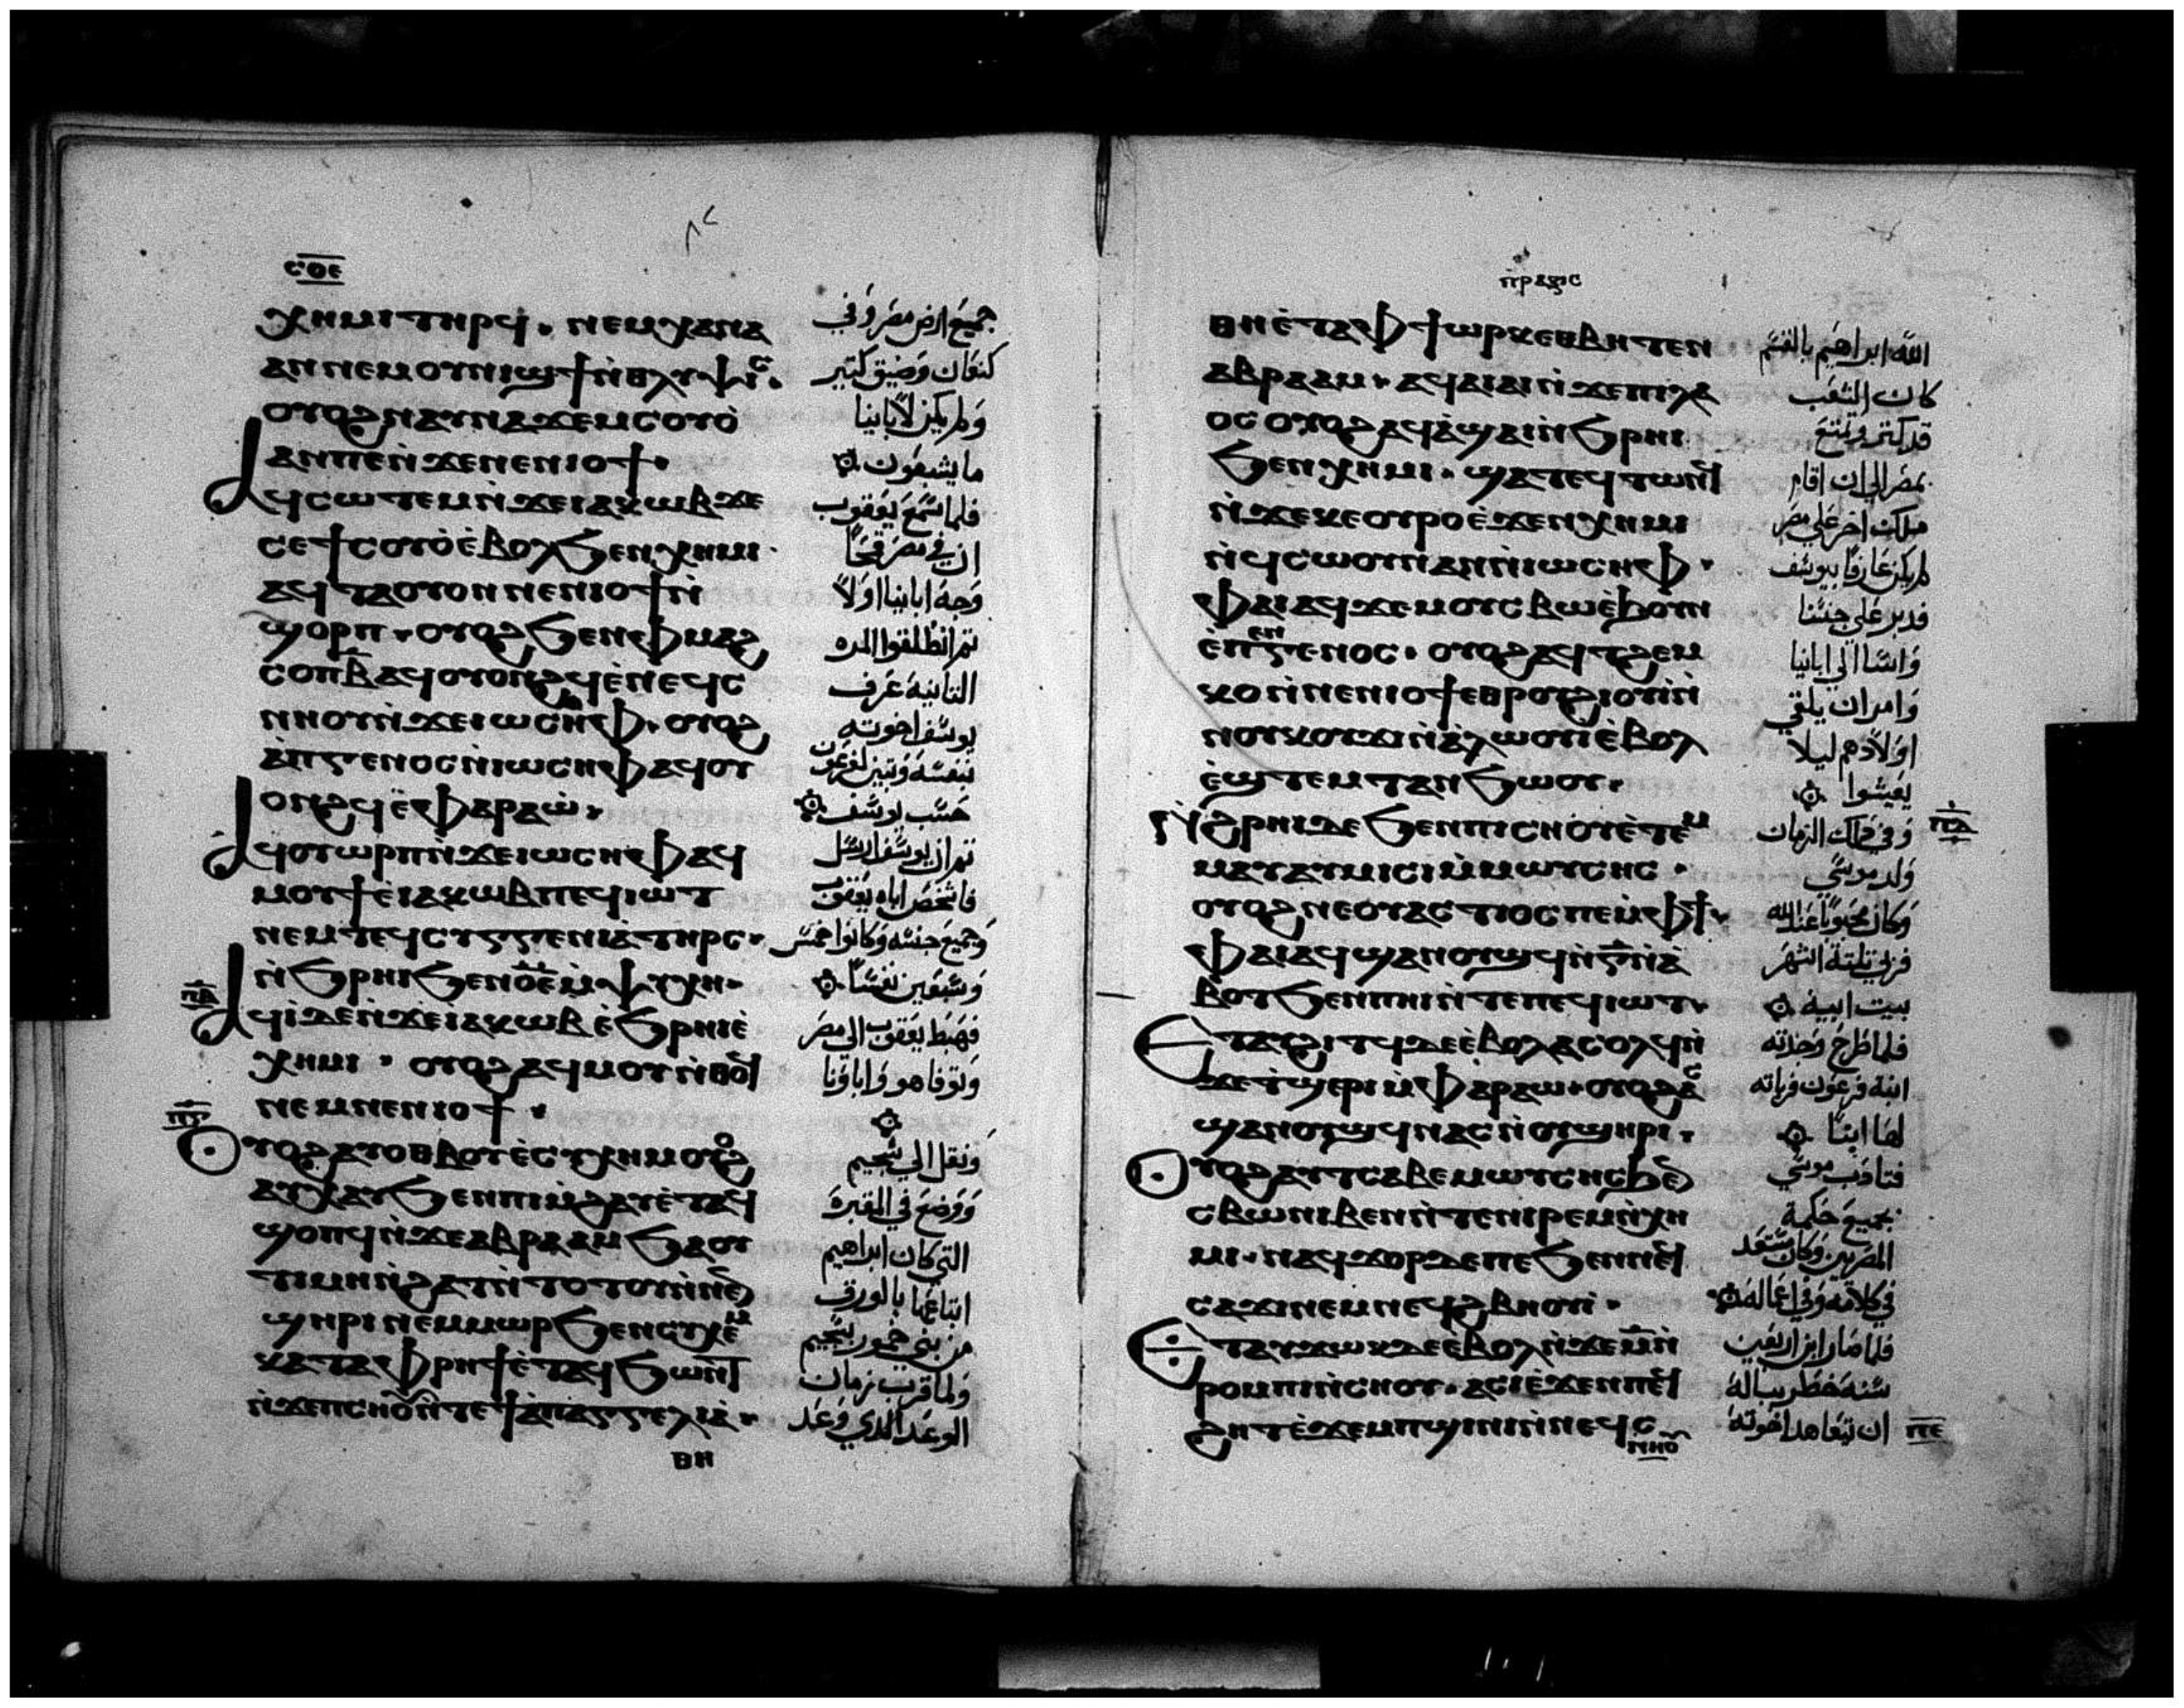 ⲥⲟⲉ
ⲭⲏⲙⲓ ⲧⲏⲣϥ. ⲛⲉⲙ ⲭⲁⲛⲁ
ⲁⲛ ⲛⲉⲙ ⲟⲩⲛⲓϣϯ ⲛ̀ⲑⲗⲩⲯⲓⲥ.
ⲟⲩⲟϩ ⲛⲁⲩⲛⲁϫⲉⲙ ⲥⲟⲩⲟ̀
ⲁⲛ ⲡⲉ ⲛ̀ϫⲉ ⲛⲉⲛⲓⲟϯ.
ⲁϥⲥⲱⲧⲉⲙ ⲛ̀ϫⲉ ⲓⲁⲕⲱⲃ ϫⲉ
ⲥⲉϯ ⲥⲟⲩⲟ̀ ⲉ̀ⲃⲟⲗ ϧⲉⲛ ⲭⲏⲙⲓ.
ⲁϥⲧⲁⲟⲩⲟ ⲛ ⲛⲉⲛⲓⲟϯ ⲛ̀
ϣⲟⲣⲡ. ⲟⲩⲟϩ ϧⲉⲛ ⲫⲙⲁϩ
ⲥⲟⲡ ⲃ̅ ⲁϥⲟⲩⲟⲛϩϥ ⲉ̀ⲛⲉϥⲥ
ⲛⲏⲟⲩ ⲛ̀ϫⲉ ⲓⲱⲥⲏⲫ. ⲟⲩⲟϩ
ⲁ̀ ⲡⲅⲉⲛⲟⲥ ⲛ̀ⲓⲱⲥⲏⲫ ⲁϥⲟⲩ
ⲟⲛϩϥ ⲉ̀ⲫⲁⲣⲁⲱ̀.
ⲁϥⲟⲩⲱⲣⲡ ⲛ̀ϫⲉ ⲓⲱⲥⲏⲫ ⲁϥ
ⲙⲟⲩϯ ⲉ̀ⲓⲁⲕⲱⲃ ⲡⲉϥⲓⲱⲧ
ⲛⲉⲙ ⲧⲉϥⲥⲩⲅⲅⲉⲛⲓⲁ̀ ⲧⲏⲣⲥ.
ⲛ̀ϧⲣⲏⲓ ϧⲉⲛ ⲟ̅ⲉ̅ ⲙ̀ⲯⲩⲭⲏ.
ⲡ̅ⲃ̅
ⲁϥⲓ̀ ⲇⲉ ⲛ̀ϫⲉ ⲓⲁⲕⲱⲃ ⲉ̀ϧⲣⲏⲓ ⲉ̀
ⲭⲏⲙⲓ. ⲟⲩⲟϩ ⲁϥⲙⲟⲩ ⲛ̀ⲑⲟϥ
ⲛⲉⲙ ⲛⲉⲛⲓⲟϯ.
ⲡ̅ⲅ̅
ⲟⲩⲟϩ ⲁⲩⲟⲑⲃⲟⲩ ⲉ̀ⲥⲩⲭⲏⲙ ⲟⲩⲟϩ
ⲁⲩⲭⲁⲩ ϧⲉⲛ ⲡⲓⲙ̀ϩⲁⲩ ⲉ̀ⲧⲁϥ
ϣⲟⲡϥ ⲛ̀ϫⲉ ⲁⲃⲣⲁⲁⲙ ϧⲁ ⲟⲩ
ⲧⲓⲙⲏ ⲛ̀ϩⲁⲧ ⲛ̀ⲧⲟⲧⲟⲩ ⲛ̀ⲛⲉⲛ
ϣⲏⲣⲓ ⲛ̀ⲉⲙⲙⲱⲣ ϧⲉⲛ ⲥⲩⲭⲉⲙ
ⲕⲁⲧⲁ ⲫⲣⲏϯ ⲉ̀ⲧⲁϥϧⲱⲛⲧ
ⲛ̀ϫⲉ ⲡⲥⲏⲟⲩ ⲛ̀ⲧⲉ ϯⲁ̀ⲡⲁⲅⲅⲉⲗⲓⲁ̀.
ⲑⲏ
جميع ارض مصر وفي
كنعان وضيق كتير
ولم يكن لابانيا
ما يشبعون
فلما سمع يعقوب
ان في مصر قمحا
وجه ابانيا اولا
تم انطلقوا المره
التانيه عرف
يوسف اخوته
بنفسه وتبين لفرعون
حسب يوسف
تم ان يوسف ارسل
فاشخص اباه يعقوب
وجميع جنسه وكانوا خمس
وسبعين نفسا
فهبط يعقوب الى مصر
وتوفا هو واباونا
ونقل الي شخيم
ووضع في المقبره
التي كان ابراهيم
ابتاعها بالورق
من بني حمور بشخيم
ولما قرب زمان
الوعد الذي وعد
ⲡⲣⲁⲝⲓⲥ
ⲑⲏ ⲉ̀ⲧⲁ ⲫϯ ⲱⲣⲕ ⲉⲑⲃⲏⲧⲥ ⲛ
ⲁⲃⲣⲁⲁⲙ. ⲁϥⲁⲓⲁⲓ ⲛ̀ϫⲉ ⲡⲓⲗⲁ
ⲟⲥ ⲟⲩⲟϩ ⲁϥⲁ̀ϣⲁⲓ ⲛ̀ϧⲣⲏⲓ
ϧⲉⲛ ⲭⲏⲙⲓ. ϣⲁⲧⲉϥⲧⲱⲛϥ
ⲛ̀ϫⲉ ⲕⲉⲟⲩⲣⲟ ⲉ̀ϫⲉⲛ ⲭⲏⲙⲓ
ⲛ̀ϥⲥⲱⲟⲩⲛ ⲁⲛ ⲛ̀ⲓⲱⲥⲏⲫ.
ⲫⲁⲓ ⲁϥϫⲉⲙ ⲟⲩⲥⲃⲱ ⲉ̀ϧⲟⲩⲛ
ⲉ̀ⲡⲉⲛⲅⲉⲛⲟⲥ. ⲟⲩⲟϩ ⲁϥⲧϩⲉⲙ
ⲕⲟ ⲛ̀ⲛⲉⲛⲓⲟϯ ⲉⲑⲣⲟⲩϩⲓⲟⲩⲓ̀ ⲛ̀
ⲛⲟⲩⲕⲟⲩϫⲓ ⲛ̀ⲁ̀ⲗⲱⲟⲩⲓ̀ ⲉ̀ⲃⲟⲗ
ⲉ̀ϣⲧⲉⲙⲧⲁⲛϧⲱⲟⲩ.
ⲡ̅ⲇ̅
ⲛ̀ϩⲣⲏⲓ ⲇⲉ ϧⲉⲛ ⲡⲓⲥⲏⲟⲩ ⲉ̀ⲧⲉⲙ
ⲙⲁⲩ ⲁⲩⲙⲓⲥⲓ ⲙ̀ⲙⲱⲩⲥⲏⲥ.
ⲟⲩⲟϩ ⲛⲉ ⲟⲩⲁⲥⲧⲓⲟⲥ ⲡⲉ ⲙ̀ⲫϯ.
ⲫⲁⲓ ⲁϥϣⲁⲛⲟⲩϣϥ ⲛ̀ⲅ̅ ⲛ̀ⲁ̀
ⲃⲟⲧ ϧⲉⲛ ⲡⲏⲓ ⲛ̀ⲧⲉ ⲡⲉϥⲓⲱⲧ.
ⲉⲧⲁⲩϩⲓⲧϥ ⲇⲉ ⲉ̀ⲃⲟⲗ ⲁⲥⲟⲗϥ ⲛ̀
ϫⲉ ⲧ̀ϣⲉⲣⲓ ⲙ̀ⲫⲁⲣⲁⲱ. ⲟⲩⲟϩ ⲁⲥ
ϣⲁⲛⲟⲩϣϥ ⲛⲁⲥ ⲛ̀ⲟⲩϣⲏⲣⲓ.
ⲟⲩⲟϩ ⲁⲩⲧⲥⲁⲃⲉ ⲙⲱⲩⲥⲏⲥ ϧⲉⲛ
ⲥⲃⲱ ⲛⲓⲃⲉⲛ ⲛ̀ⲧⲉ ⲛⲓⲣⲉⲙⲛ̀ⲭⲏ
ⲙⲓ. ⲛⲁϥϫⲟⲣ ⲇⲉ ⲡⲉ ϧⲉⲛ ⲛⲉϥ
ⲥⲁϫⲓ ⲛⲉⲙ ⲛⲉϥϩⲃⲏⲟⲩⲓ̀.
ⲉⲧⲁⲩϫⲱⲕ ⲇⲉ ⲉ̀ⲃⲟⲗ ⲛ̀ϫⲉ ⲙ̅ ⲛ̀
ⲣⲟⲙⲡⲓ ⲛ̀ⲥⲏⲟⲩ. ⲁⲥⲓ̀ ⲉ̀ϫⲉⲛ ⲡⲉϥ
ϩⲏⲧ ⲉ̀ϫⲉⲙ ⲡϣⲓⲛⲓ ⲛ̀ⲛⲉϥⲥ
ⲛⲏⲟⲩ
الله ابراهيم بالقسم
كان الشعب
قد كتر وتمتع
بمصر الي ان اقام
ملك اخر علي مصر
لم يكن عارفا بيوسف
فدبر علي جنسنا
واسا الي ابانيا
وامر ان يلقي
اولادهم ليلا
يعيشوا
وفي ذلك الزمان
ولد موسي
وكان محبوبا عند الله
فربي تلتة اشهر
بيت ابيه
فلما طرح وجدته
ابنة فرعون فرباته
لها ابنا
فتادب موسي
بجميع حكمة
المصريين وكان مستعد
في كلامه وفي اعماله
فلما صار ابن اربعين
سنه خطر بباله
ان يتعاهد اخوته
ⲡ̅ⲉ̅